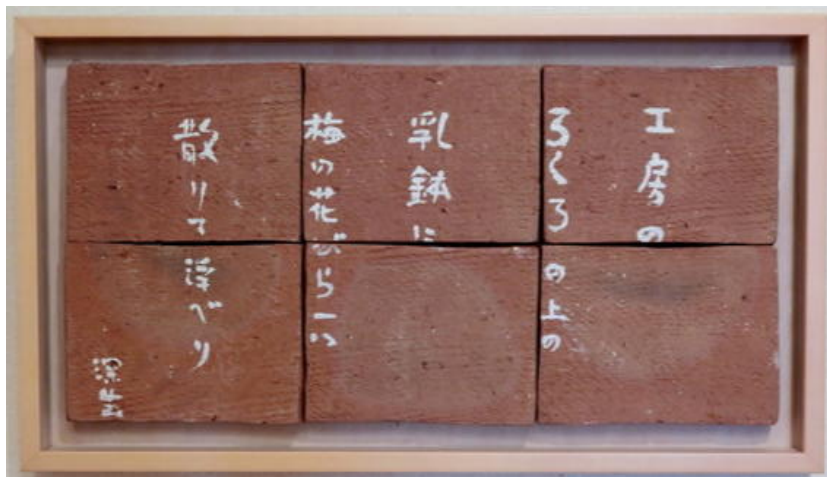 工房の
ろくろの上の
乳鉢に
梅の花びら一つ
散りて浮べり